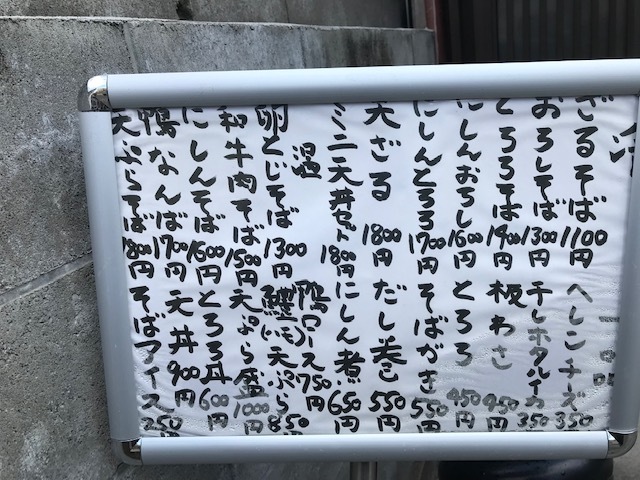 ざるそば 1100円
おろしそば 1300円
とろろそば 1400円
にしんおろし 1600円
にしんとろろ 1700円
天ざる 1800円
ミニ天丼セット 1800円
温
卵とじそば 1300
和牛肉そば 1500円
にしんそば 1600円
鴨なんば 1700円
天ぷらそば 1800円
へしこチーズ 350
干しホタルイカ 350
板わさ 450円
とろろ 450円
そばがき 550円
だし巻 550円
にしん煮 650円
鴨ロース 750円
鱧(ハモ)天ぷら 850
天ぷら盛 1000円
とろろ丼 600円
天丼 900円
そばアイス 250円